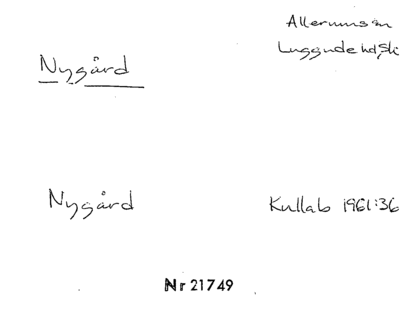 Allerums sn
Luggude hd, Sk
Nygård
Nygård
Kullab 1961:36
Nr 21749